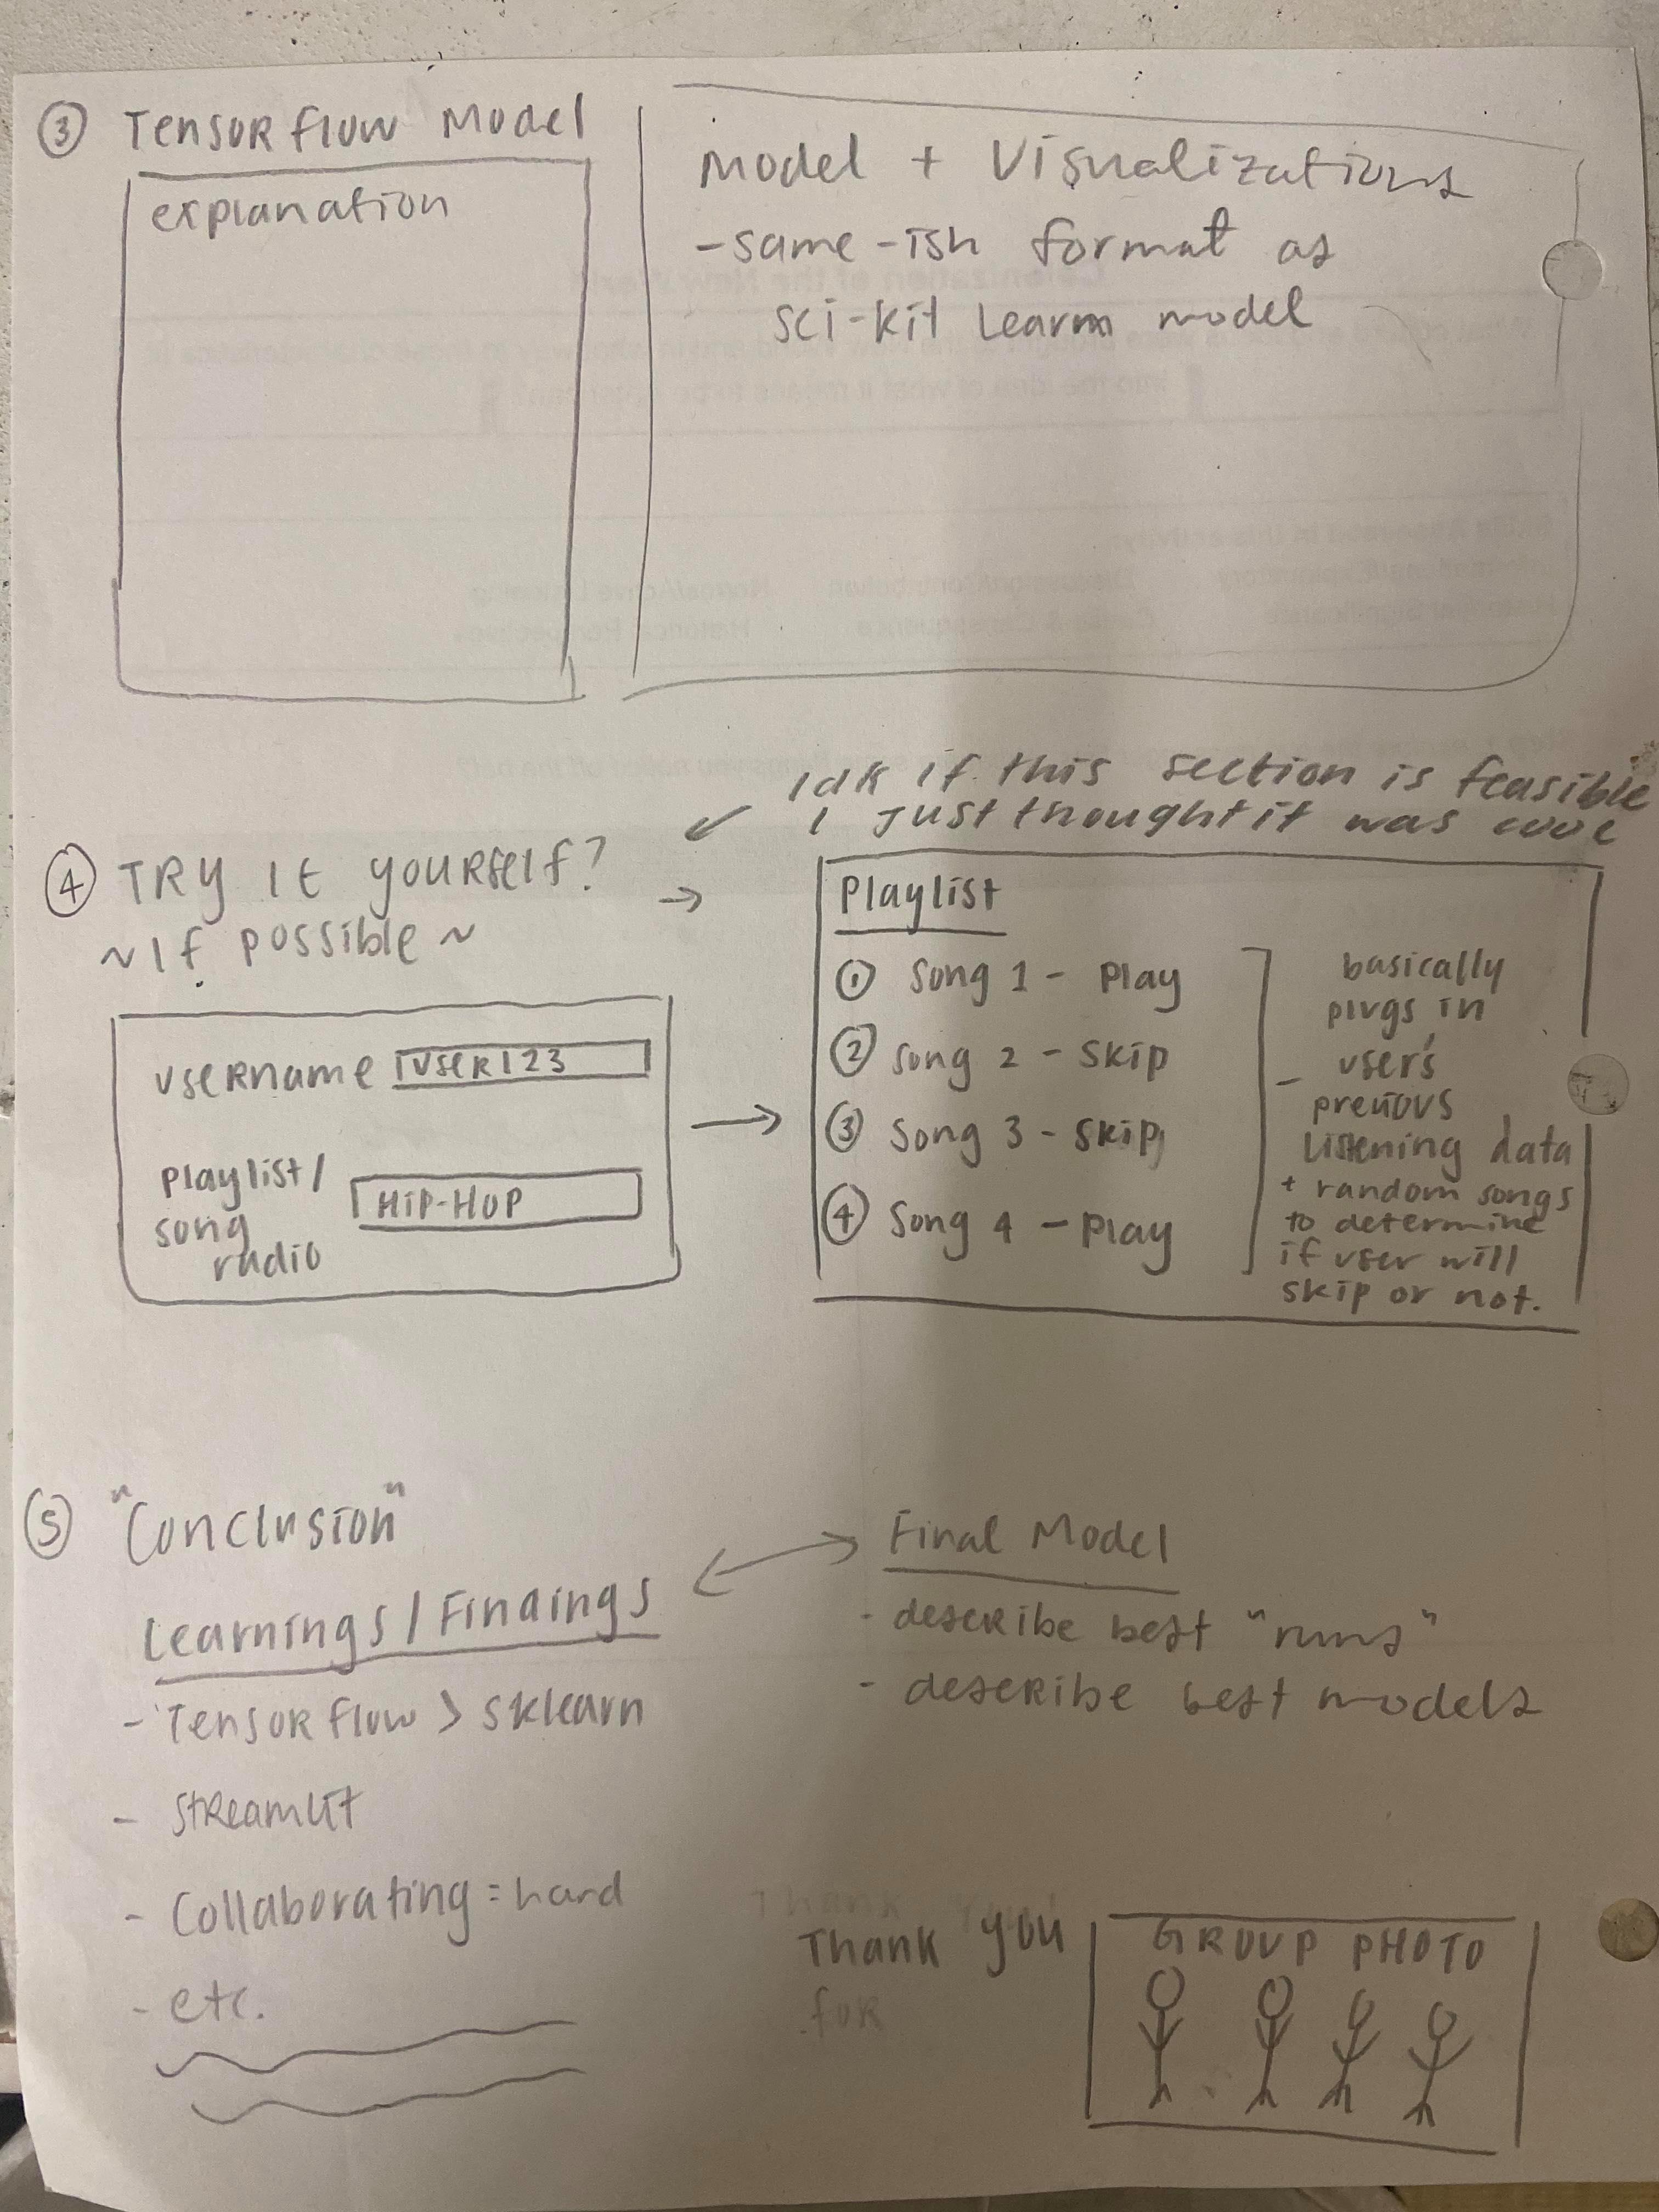 ③ Tensorflow Model
explanation
Model + Visualizations
- same-ish format as
sci-kit Learn model
Idk if this section is feasible
I just thought it was cool
④ TRY It yourself?
~ If possible ~
username USER123
playlist/
song
radio
HIP-HOP
Playlist
① Song 1 - Play
② Song 2 - Skip
③ Song 3 - Skip
④ Song 4 - Play
basically
plugs in
user's
previous
listening data
+ random songs
to determine
if user will
skip or not.
⑤ "Conclusion"
Learnings/Findings
- Tensorflow > sklearn
- Streamlit
- Collaborating = hard
- etc.
Final Model
- describe best "runs"
- describe best models
Thank you
for
GROUP PHOTO